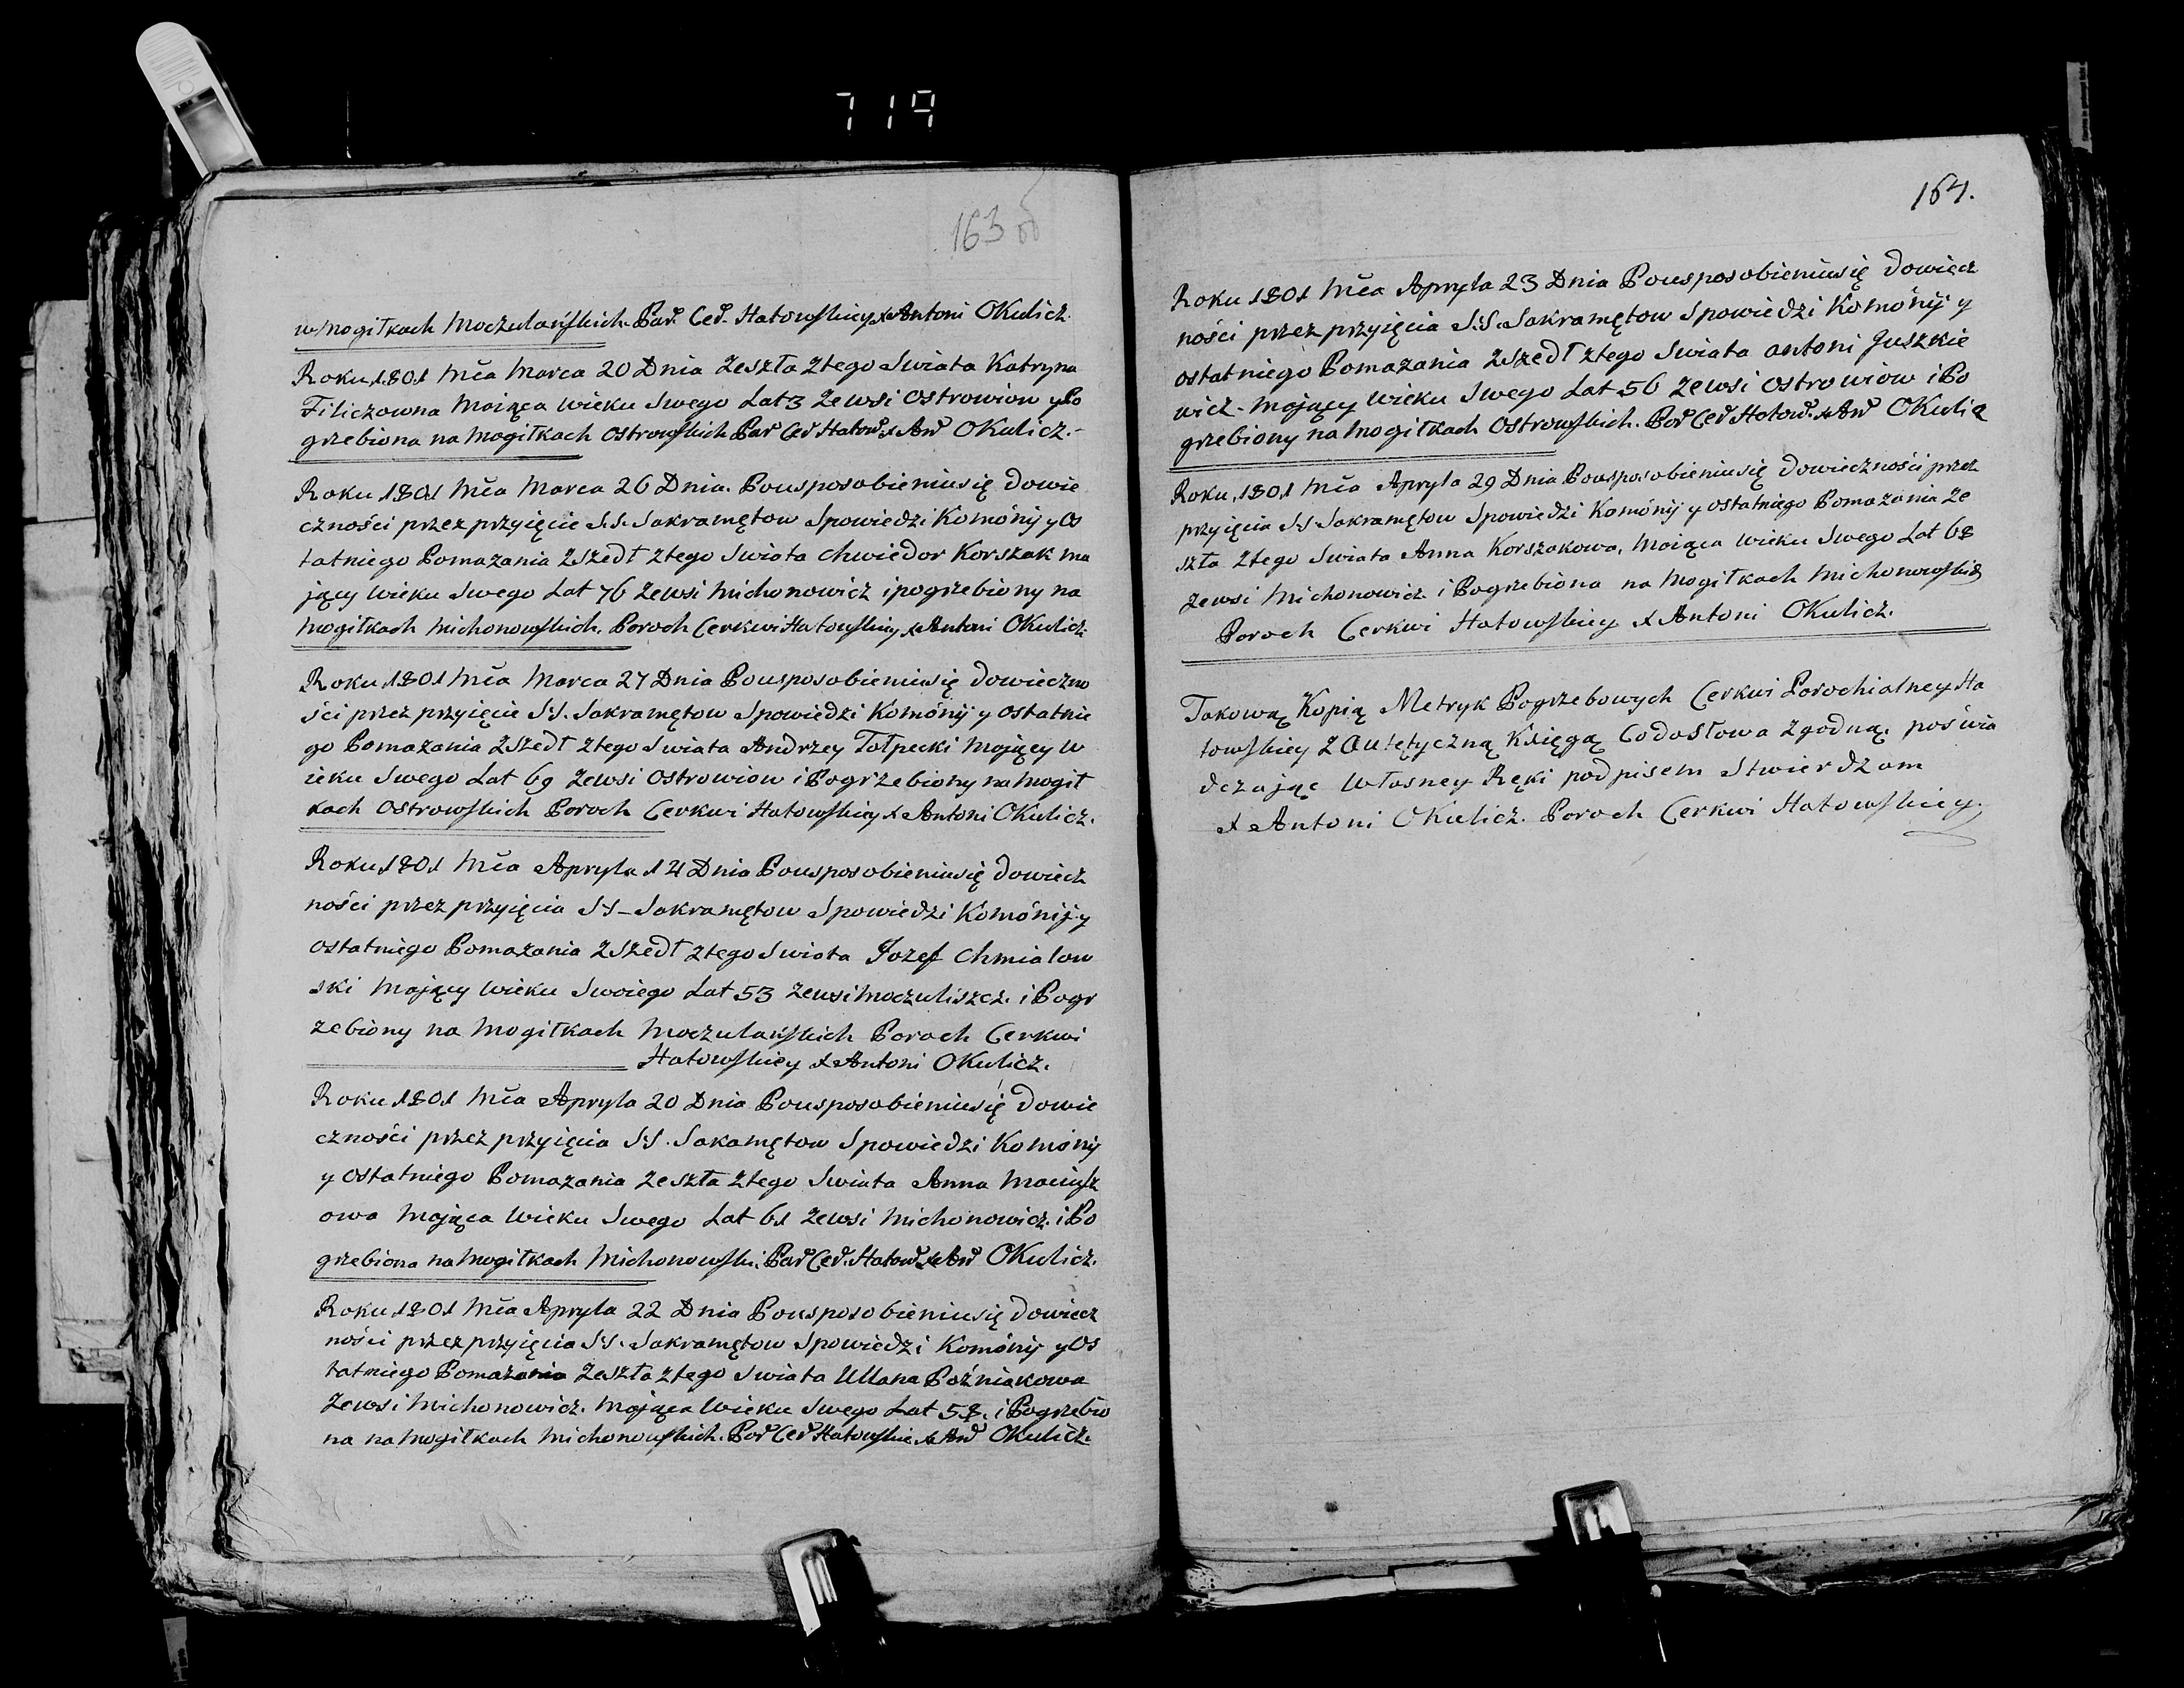 719
163 об
w mogiłkach Moczulańskich. Par. Cer. Hatowskiey X Antoni Okulicz
Roku 1801 Mca Marca 20 Dnia Zeszła Ztego Swiata Katryna
Filiczowna Maiąca wieku Swego Lat 3 Zewsi Ostrowiow y Po
grzebiona na Mogiłkach Ostrowskich Par Cer Hatow. X An Okulicz.-
Roku 1801 Mca Marca 26 Dnia. Pousposobieniusię dowie
czności przez przyięcie S.S. Sakramętow Spowiedzi Komónij y Os
tatniego Pomazania Zszedł Ztego Swiata Chwiedor Korszak ma
jący wieku Swego Lat 76 Zewsi Michonowicz i pogrzebiony na
Mogiłkach Michonowskich. Paroch Cerkwi Hatowskiey X Antoni Okulicz
Roku 1801 Mca Marca 27 Dnia Pousposobieniusię dowieczno
ści przez przyięcie S.S. Sakramętow Spowiedzi Komónij y Ostatnie
go Pomazania Zszedł Ztego Swiata Andrzey Tołpecki Mojący w
ieku Swego Lat 69 Zewsi Ostrowiow i Pogrzebiony na Mogił
kach Ostrowskich Paroch Cerkwi Hatowskiey X Antoni Okulicz.
Roku 1801 Mca Apryla 14 Dnia Pousposobieniusię dowiecz
ności przez przyięcia S.S- Sakramętow Spowiedzi Komónij y
Ostatniego Pomazania Zszedł Ztego Swiata Jozef Chmialow
ski Mający wieku Swoiego Lat 53 Zewsi Moczuliszcz. i Pogr
zebiony na Mogiłkach Moczulańskich Paroch Cerkwi
Hatowskiey X Antoni Okulicz.
Roku 1801 Mca Apryla 20 Dnia Pousposobieniusię dowie
czności przez przyięcia S.S. Sakamętow Spowiedzi Komónij
y Ostatniego Pomazania Zeszła Ztego Swiata Anna
owa Mająca wieku Swego Lat 61 Zewsi Michonowicz. i Po
grzebiona na Mogiłkach Michonowski. Par Cer. Hatow. X An Okulicz.
Roku 1801 Mca Apryla 22 Dnia Pousposobieniusię dowiecz
ności przez przyięcia S.S. Sakramętow Spowiedzi Komónij y Os
tatniego Pomazania Zeszła Ztego Swiata Ullana Poźniakowa
Zewsi Michonowicz. Mająca wieku Swego Lat 58. i Pogrzebio
na na Mogiłkach Michonowskich. Par Cer Hatowskie X An Okulicz.
164.
Roku 1801 Mca Apryla 23 Dnia Pousposobieniusię dowiecz
ności przez przyięcia S.S. Sakramętow Spowiedzi Komónij y
Ostatniego Pomazania Zszedł Ztego Swiata Antoni Juszkie
wicz. Mojący wieku Swego Lat 56 Zewsi Ostrowiow i Po
grzebiony na Mogiłkach Ostrowskich. Par Cer Hatow. X An Okulic
Roku 1801 Mca Apryla 29 Dnia Pousposobieniusię dowieczności przez
przyięcia S.S Sakramętow Spowiedzi Komónij y Ostatniego Pomazania Ze
szła Ztego Swiata Anna Korszakowa, Maiąca wieku Swego Lat 68
Zewsi Michonowicz. i Pogrzebiona na Mogiłkach Michonowskich
Paroch Cerkwi Hatowskiey X Antoni Okulicz.
Takową Kopią Metryk Pogrzebowych Cerkwi Parochialney Ha
towskiey Z Autętyczną Księgą Codosłowa Zgodną. poświa
dczając własney Ręki podpisem Stwierdzam
X Antoni Okulicz. Paroch Cerkwi Hatowskiey.